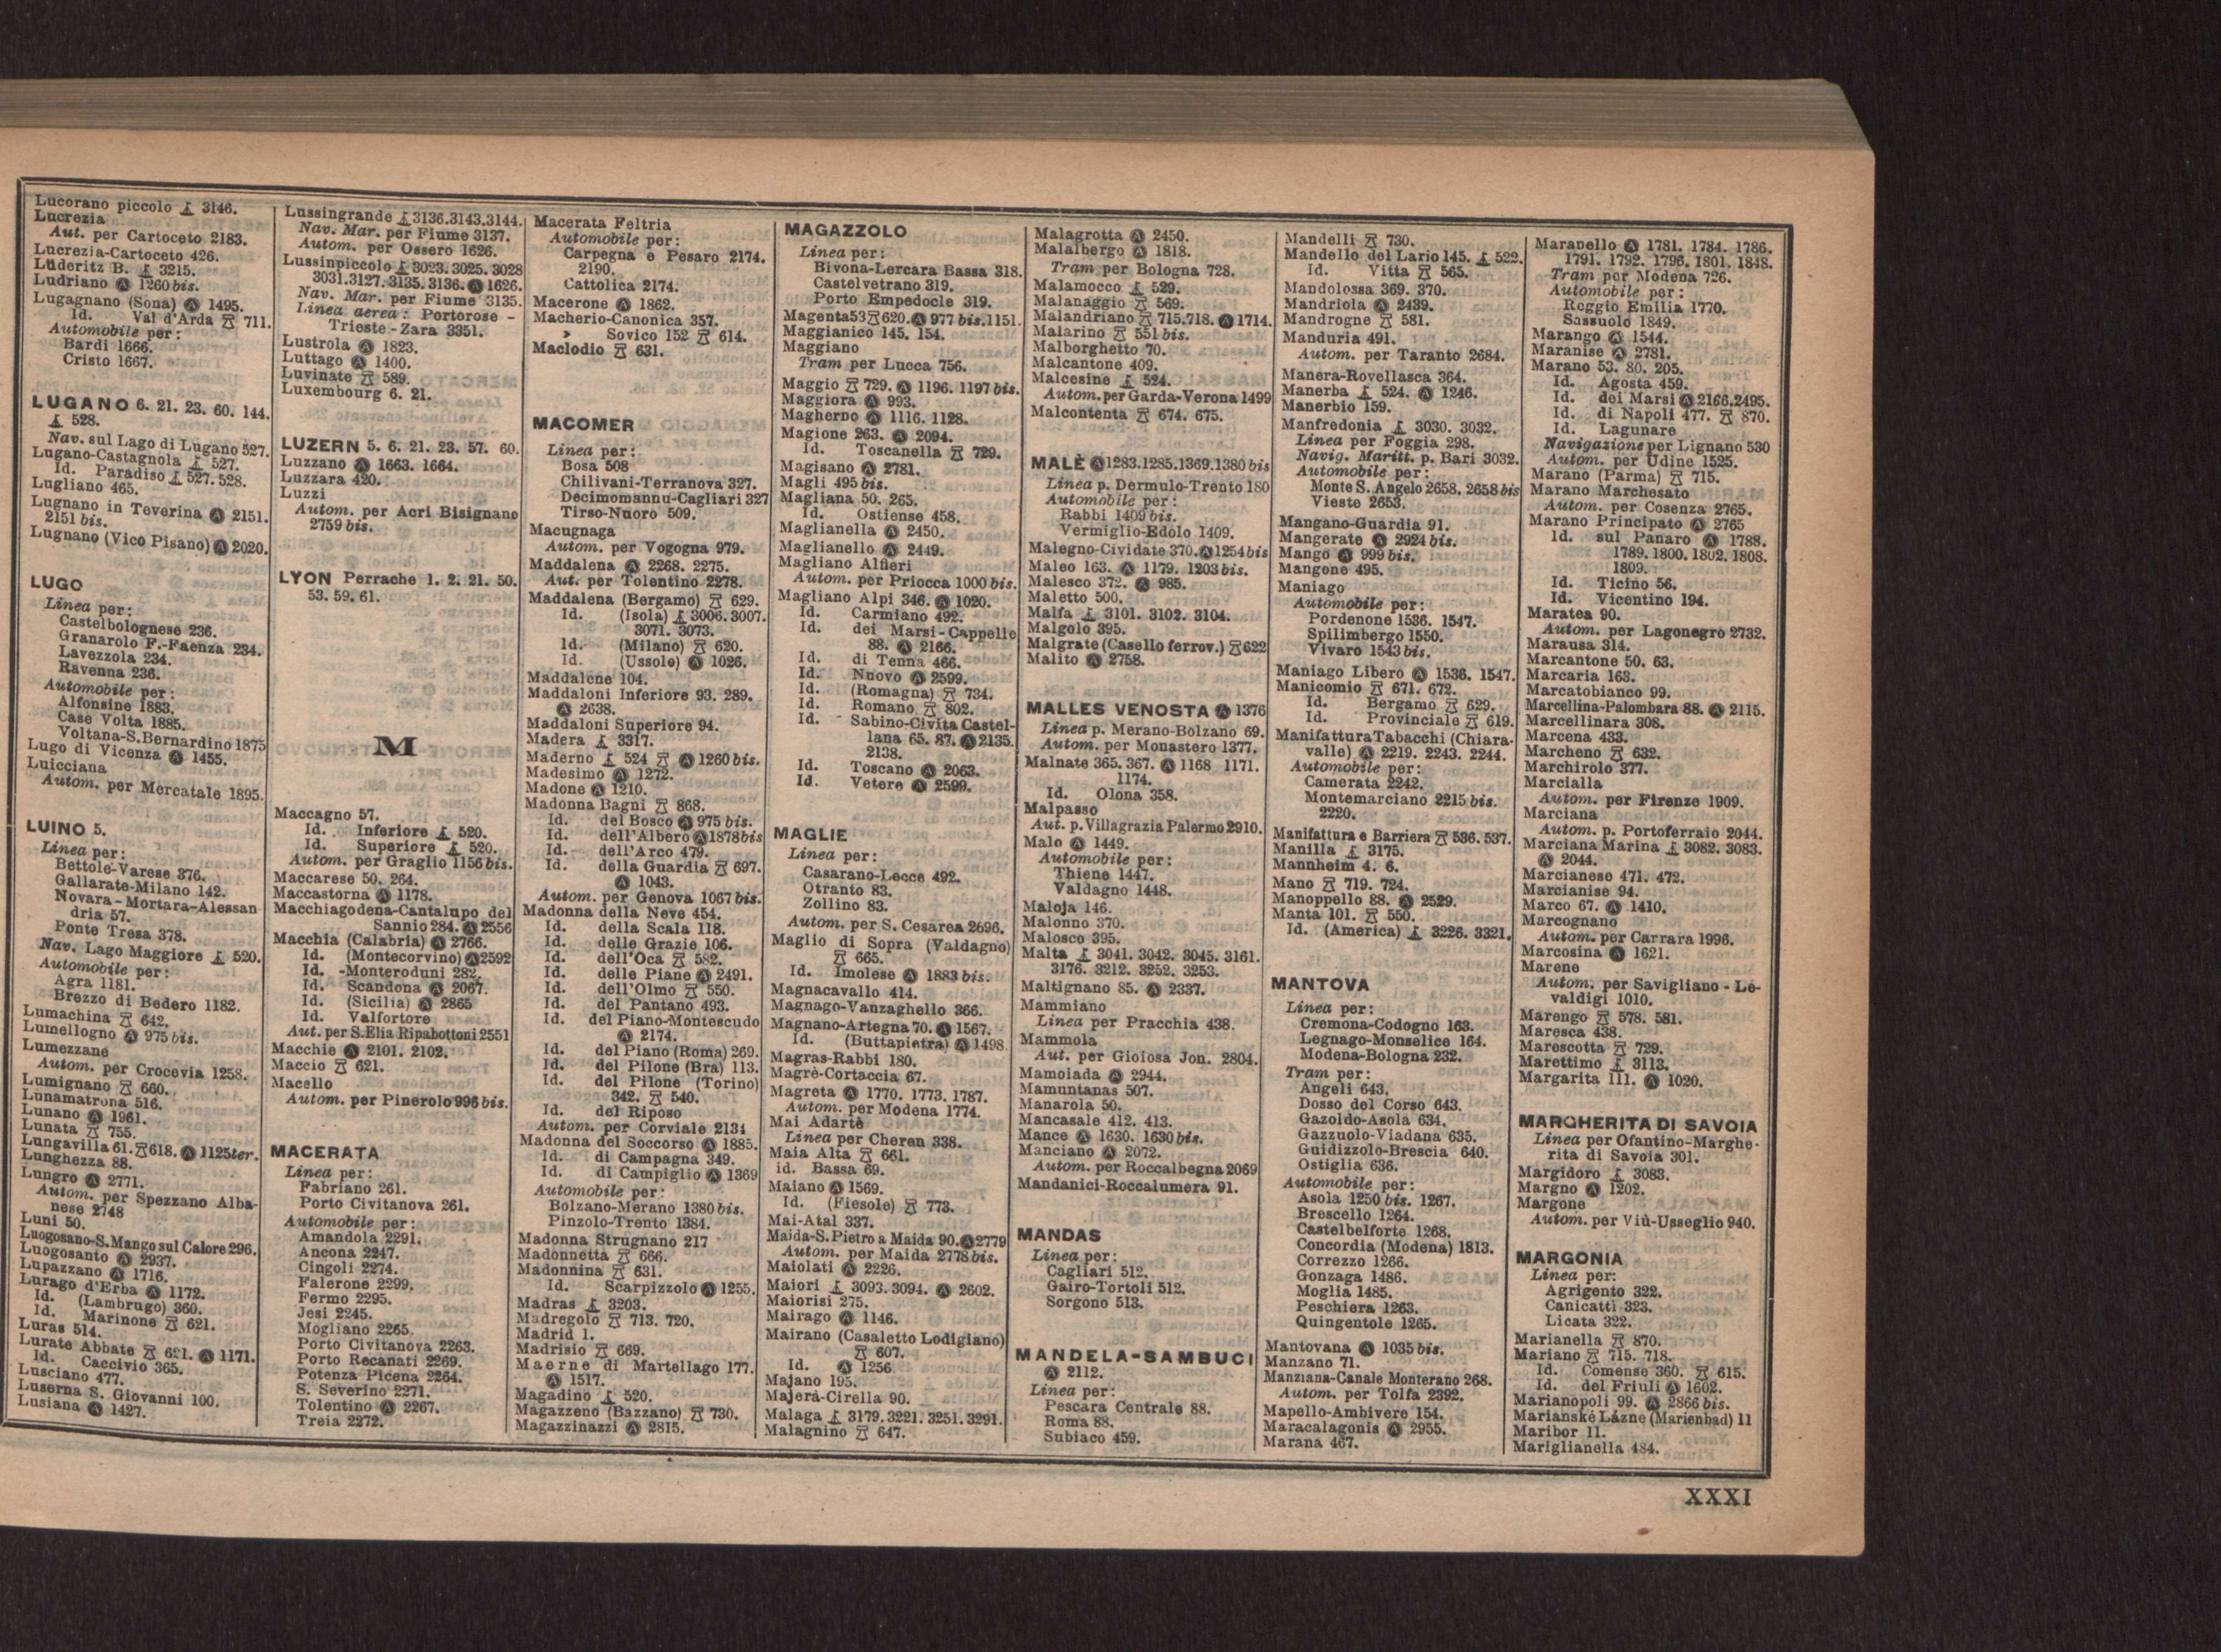 Lucorano piccolo 3146.
Lucrezia
Aut. per Cartoceto 2183.
Lucrezia-Cartoceto 426.
Lüderitz B. 3215.
Ludriano Ⓐ 1260 bis.
Lugagnano (Sona) Ⓐ 1495.
Id. Val d'Arda 711.
Automobile per:
Bardi 1666.
Cristo 1667.
LUGANO 6. 21. 23. 60. 144.
528.
Nav. sul Lago di Lugano 527.
Lugano-Castagnola 527.
Id. Paradiso 527. 528.
Lugliano 465.
Lugnano in Teverina Ⓐ 2151.
2151 bis.
Lugnano (Vico Pisano) Ⓐ 2020.
LUGO
Linea per:
Castelbolognese 236.
Granarolo F.-Faenza 234.
Lavezzola 234.
Ravenna 236.
Automobile per:
Alfonsine 1883.
Case Volta 1885.
Voltana-S.Bernardino 1875
Lugo di Vicenza Ⓐ 1455.
Luicciana
Autom. per Mercatale 1895.
LUINO 5.
Linea per:
Bettole-Varese 376.
Gallarate-Milano 142.
Novara-Mortara-Alessan
dria 57.
Ponte Tresa 378.
Nav. Lago Maggiore 520.
Automobile per:
Agra 1181.
Brezzo di Bedero 1182.
Lumachina 642.
Lumellogno Ⓐ 975 bis.
Lumezzane
Autom. per Crocevia 1258.
Lumignano 660.
Lunamatrona 516.
Lunano Ⓐ 1961.
Lunata 755.
Lungavilla 61. 618. Ⓐ 1125 ter.
Lunghezza 88.
Lungro Ⓐ 2771.
Autom. per Spezzano Alba-
nese 2748
Luni 50.
Luogosano-S. Mango sul Calore 296.
Luogosanto Ⓐ 2937.
Lupazzano Ⓐ 1716.
Lurago d'Erba Ⓐ 1172.
Id. (Lambrugo) 360.
Id. Marinone 621.
Luras 514.
Lurate Abbate 621. Ⓐ 1171.
Id. Caccivio 365.
Lusciano 477.
Luserna S. Giovanni 100.
Lusiana Ⓐ 1427.
Lussingrande 3136. 3143. 3144.
Nav. Mar. per Fiume 3137.
Autom. per Ossero 1626.
Lussinpiccolo 3023. 3025. 3028
3031. 3127. 3135. 3136. Ⓐ 1626.
Nav. Mar. per Fiume 3135.
Linea aerea: Portorose -
Trieste - Zara 3351.
Lustrola Ⓐ 1823.
Luttago Ⓐ 1400.
Luvinate 589.
Luxembourg 6. 21.
LUZERN 5. 6. 21. 23. 57. 60.
Luzzano Ⓐ 1663. 1664.
Luzzara 420.
Luzzi
Autom. per Acri Bisignano
2759 bis.
LYON Perrache 1. 2. 21. 50.
53. 59. 61.
M
Maccagno 57.
Id. Inferiore 520.
Id. Superiore 520.
Autom. per Graglio 1156 bis.
Maccarese 50. 264.
Maccastorna Ⓐ 1178.
Macchiagodena-Cantalupo del
Sannio 284. Ⓐ 2556
Macchia (Calabria) Ⓐ 2766.
Id. (Montecorvino) Ⓐ 2592
Id. -Monteroduni 282.
Id. Scandona Ⓐ 2067.
Id. (Sicilia) Ⓐ 2865
Id. Valfortore
Aut. per S.Elia Ripabottoni 2551
Macchie Ⓐ 2101. 2102.
Maccio 621.
Macello
Autom. per Pinerolo 996 bis.
MACERATA
Linea per:
Fabriano 261.
Porto Civitanova 261.
Automobile per:
Amandola 2291.
Ancona 2247.
Cingoli 2274.
Falerone 2299.
Fermo 2295.
Jesi 2245.
Mogliano 2265.
Porto Civitanova 2263.
Porto Recanati 2269.
Potenza Picena 2264.
S. Severino 2271.
Tolentino Ⓐ 2267.
Treia 2272.
Macerata Feltria
Automobile per:
Carpegna e Pesaro 2174.
2190.
Cattolica 2174.
Macerone Ⓐ 1862.
Macherio-Canonica 357.
» Sovico 152 614.
Maclodio 631.
MACOMER
Linea per:
Bosa 508
Chilivani-Terranova 327.
Decimomannu-Cagliari 327
Tirso-Nuoro 509.
Macugnaga
Autom. per Vogogna 979.
Maddalena Ⓐ 2268. 2275.
Aut. per Tolentino 2278.
Maddalena (Bergamo) 629.
Id. (Isola) 3006. 3007.
3071. 3073.
Id. (Milano) 620.
Id. (Ussolo) Ⓐ 1026.
Maddalene 104.
Maddaloni Inferiore 93. 289.
Ⓐ 2638.
Maddaloni Superiore 94.
Madera 3317.
Maderno 524 Ⓐ 1260 bis.
Madesimo Ⓐ 1272.
Madone Ⓐ 1210.
Madonna Bagni 868.
Id. del Bosco Ⓐ 975 bis.
Id. dell'Albero Ⓐ 1878 bis
Id. dell'Arco 479.
Id. della Guardia 697.
Ⓐ 1043.
Autom. per Genova 1067 bis.
Madonna della Neve 454.
Id. della Scala 118.
Id. delle Grazie 106.
Id. dell'Oca 582.
Id. delle Piane Ⓐ 2491.
Id. dell'Olmo 550.
Id. del Pantano 493.
Id. del Piano-Montescudo
Ⓐ 2174.
Id. del Piano (Roma) 269.
Id. del Pilone (Bra) 113.
Id. del Pilone (Torino)
342. 540.
Id. del Riposo
Autom. per Corviale 2131
Madonna del Soccorso Ⓐ 1885.
Id. di Campagna 349.
Id. di Campiglio Ⓐ 1369
Automobile per:
Bolzano-Merano 1380 bis.
Pinzolo-Trento 1384.
Madonna Strugnano 217
Madonnetta 666.
Madonnina 631.
Id. Scarpizzolo Ⓐ 1255.
Madras 3203.
Madregolo 713. 720.
Madrid 1.
Madrisio 669.
Maerne di Martellago 177.
Ⓐ 1517.
Magadino 520.
Magazzeno (Bazzano) 730.
Magazzinazzi Ⓐ 2815.
MAGAZZOLO
Linea per:
Bivona-Lercara Bassa 318.
Castelvetrano 319.
Porto Empedocle 319.
Magenta 53 620. Ⓐ 977 bis. 1151.
Maggianico 145. 154.
Maggiano
Tram per Lucca 756.
Maggio 729. Ⓐ 1196. 1197 bis.
Maggiora Ⓐ 993.
Magherno Ⓐ 1116. 1128.
Magione 263. Ⓐ 2094.
Id. Toscanella 729.
Magisano Ⓐ 2781.
Magli 495 bis.
Magliana 50. 265.
Id. Ostiense 458.
Maglianella Ⓐ 2450.
Maglianello Ⓐ 2449.
Magliano Alfieri
Autom. per Priocca 1000 bis.
Magliano Alpi 346. Ⓐ 1020.
Id. Carmiano 492.
Id. dei Marsi-Cappelle
88. Ⓐ 2166.
Id. di Tenna 466.
Id. Nuovo Ⓐ 2599.
Id. (Romagna) 734.
Id. Romano 802.
Id. Sabino-Civita Castel-
lana 65. 87. Ⓐ 2135.
2138.
Id. Toscano Ⓐ 2063.
Id. Vetere Ⓐ 2599.
MAGLIE
Linea per:
Casarano-Lecce 492.
Otranto 83.
Zollino 83.
Autom. per S. Cesarea 2696.
Maglio di Sopra (Valdagno)
665.
Id. Imolese Ⓐ 1883 bis.
Magnacavallo 414.
Magnago-Vanzaghello 366.
Magnano-Artegna 70. Ⓐ 1567.
Id. (Buttapietra) Ⓐ 1498.
Magras-Rabbi 180.
Magrè-Cortaccia 67.
Magreta Ⓐ 1770. 1773. 1787.
Autom. per Modena 1774.
Mai Adartè
Linea per Cheren 338.
Maia Alta 661.
id. Bassa 69.
Maiano Ⓐ 1569.
Id. (Fiesole) 773.
Mai-Atal 337.
Maida-S. Pietro a Maida 90. Ⓐ 2779
Autom. per Maida 2778 bis.
Maiolati Ⓐ 2226.
Maiori 3093. 3094. Ⓐ 2602.
Maiorisi 275.
Mairago Ⓐ 1146.
Mairano (Casaletto Lodigiano)
607.
Id. Ⓐ 1256
Majano 195.
Majerà-Cirella 90.
Malaga 3179. 3221. 3251. 3291.
Malagnino 647.
Malagrotta Ⓐ 2450.
Malalbergo Ⓐ 1818.
Tram per Bologna 728.
Malamocco 529.
Malanaggio 569.
Malandriano 715. 718. Ⓐ 1714.
Malarino 551 bis.
Malborghetto 70.
Malcantone 409.
Malcesine 524.
Autom. per Garda-Verona 1499
Malcontenta 674. 675.
MALÈ Ⓐ 1283. 1285. 1369. 1380 bis
Linea p. Dermulo-Trento 180
Automobile per:
Rabbi 1409 bis.
Vermiglio-Edolo 1409.
Malegno-Cividate 370. Ⓐ 1254 bis
Maleo 163. Ⓐ 1179. 1203 bis.
Malesco 372. Ⓐ 985.
Maletto 500.
Malfa 3101. 3102. 3104.
Malgolo 395.
Malgrate (Casello ferrov.) 622
Malito Ⓐ 2758.
MALLES VENOSTA Ⓐ 1376
Linea p. Merano-Bolzano 69.
Autom. per Monastero 1377.
Malnate 365. 367. Ⓐ 1168 1171.
1174.
Id. Olona 358.
Malpasso
Aut. p. Villagrazia Palermo 2910.
Malo Ⓐ 1449.
Automobile per:
Thiene 1447.
Valdagno 1448.
Maloja 146.
Malonno 370.
Malosco 395.
Malta 3041. 3042. 3045. 3161.
3176. 3212. 3252. 3253.
Maltignano 85. Ⓐ 2337.
Mammiano
Linea per Pracchia 438.
Mammola
Aut. per Gioiosa Jon. 2804.
Mamoiada Ⓐ 2944.
Mamuntanas 507.
Manarola 50.
Mancasale 412. 413.
Mance Ⓐ 1630. 1630 bis.
Manciano Ⓐ 2072.
Autom. per Roccalbegna 2069
Mandanici-Roccalumera 91.
MANDAS
Linea per:
Cagliari 512.
Gairo-Tortolì 512.
Sorgono 513.
MANDELA-SAMBUCI
Ⓐ 2112.
Linea per:
Pescara Centrale 88.
Roma 88.
Subiaco 459.
Mandelli 730.
Mandello del Lario 145. 522.
Id. Vitta 565.
Mandolossa 369. 370.
Mandriola Ⓐ 2439.
Mandrogne 581.
Manduria 491.
Autom. per Taranto 2684.
Manera-Rovellasca 364.
Manerba 524. Ⓐ 1246.
Manerbio 159.
Manfredonia 3030. 3032.
Linea per Foggia 298.
Navig. Maritt. p. Bari 3032.
Automobile per:
Monte S. Angelo 2658. 2658 bis
Vieste 2653.
Mangano-Guardia 91.
Mangerate Ⓐ 2924 bis.
Mango Ⓐ 999 bis.
Mangone 495.
Maniago
Automobile per:
Pordenone 1536. 1547.
Spilimbergo 1550.
Vivaro 1543 bis.
Maniago Libero Ⓐ 1536. 1547.
Manicomio 671. 672.
Id. Bergamo 629.
Id. Provinciale 619.
Manifattura Tabacchi (Chiara-
valle) Ⓐ 2219. 2243. 2244.
Automobile per:
Camerata 2242.
Montemarciano 2215 bis.
2220.
Manifattura e Barriera 536. 537.
Manilla 3175.
Mannheim 4. 6.
Mano 719. 724.
Manoppello 88. Ⓐ 2529.
Manta 101. 550.
Id. (America) 3226. 3321.
MANTOVA
Linea per:
Cremona-Codogno 163.
Legnago-Monselice 164.
Modena-Bologna 232.
Tram per:
Angeli 643.
Dosso del Corso 643.
Gazoldo-Asola 634.
Gazzuolo-Viadana 635.
Guidizzolo-Brescia 640.
Ostiglia 636.
Automobile per:
Asola 1250 bis. 1267.
Brescello 1264.
Castelbelforte 1268.
Concordia (Modena) 1813.
Correzzo 1266.
Gonzaga 1486.
Moglia 1485.
Peschiera 1263.
Quingentole 1265.
Mantovana Ⓐ 1035 bis.
Manzano 71.
Manziana-Canale Monterano 268.
Autom. per Tolfa 2392.
Mapello-Ambivere 154.
Maracalagonis Ⓐ 2955.
Marana 467.
Maranello Ⓐ 1781. 1784. 1786.
1791. 1792. 1796. 1801. 1848.
Tram per Modena 726.
Automobile per:
Reggio Emilia 1770.
Sassuolo 1849.
Marango Ⓐ 1544.
Maranise Ⓐ 2781.
Marano 53. 80. 205.
Id. Agosta 459.
Id. dei Marsi Ⓐ 2166. 2495.
Id. di Napoli 477. 870.
Id. Lagunare
Navigazione per Lignano 530
Autom. per Udine 1525.
Marano (Parma) 715.
Marano Marchesato
Autom. per Cosenza 2765.
Marano Principato Ⓐ 2765
Id. sul Panaro Ⓐ 1788.
1789. 1800. 1802. 1808.
1809.
Id. Ticino 56.
Id. Vicentino 194.
Maratea 90.
Autom. per Lagonegro 2732.
Marausa 314.
Marcantone 50. 63.
Marcaria 163.
Marcatobianco 99.
Marcellina-Palombara 88. Ⓐ 2115.
Marcellinara 308.
Marcena 433.
Marcheno 632.
Marchirolo 377.
Marcialla
Autom. per Firenze 1909.
Marciana
Autom. p. Portoferraio 2044.
Marciana Marina 3082. 3083.
Ⓐ 2044.
Marcianese 471. 472.
Marcianise 94.
Marco 67. Ⓐ 1410.
Marcognano
Autom. per Carrara 1996.
Marcosina Ⓐ 1621.
Marene
Autom. per Savigliano - Le-
valdigi 1010.
Marengo 578. 581.
Maresca 438.
Marescotta 729.
Marettimo 3113.
Margarita 111. Ⓐ 1020.
MARGHERITA DI SAVOIA
Linea per Ofantino-Marghe-
rita di Savoia 301.
Margidoro 3083.
Margno Ⓐ 1202.
Margone
Autom. per Viù-Usseglio 940.
MARGONIA
Linea per:
Agrigento 322.
Canicattì 323.
Licata 322.
Marianella 870.
Mariano 715. 718.
Id. Comense 360. 615.
Id. del Friuli Ⓐ 1602.
Marianopoli 99. Ⓐ 2866 bis.
Marianské Lázne (Marienbad) 11
Maribor 11.
Mariglianella 484.
XXXI